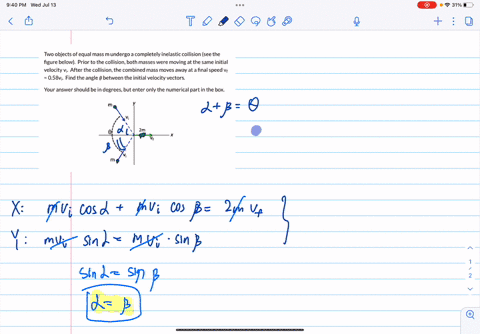 9:40 PM Wed Jul 13
31%
Two objects of equal mass m undergo a completely inelastic collision (see the
figure below). Prior to the collision, both masses were moving at the same initial
velocity vi. After the collision, the combined mass moves away at a final speed vf
= 0.58vi. Find the angle β between the initial velocity vectors.
Your answer should be in degrees, but enter only the numerical part in the box.
α + β = θ
m
y
vi
α
2m
θ
x
β
vi
m
X: mvi cosα + mvi cos β = 2m vf
Y: mvi sinα = mvi · sinβ
sinα = sin β
α = β
1
2